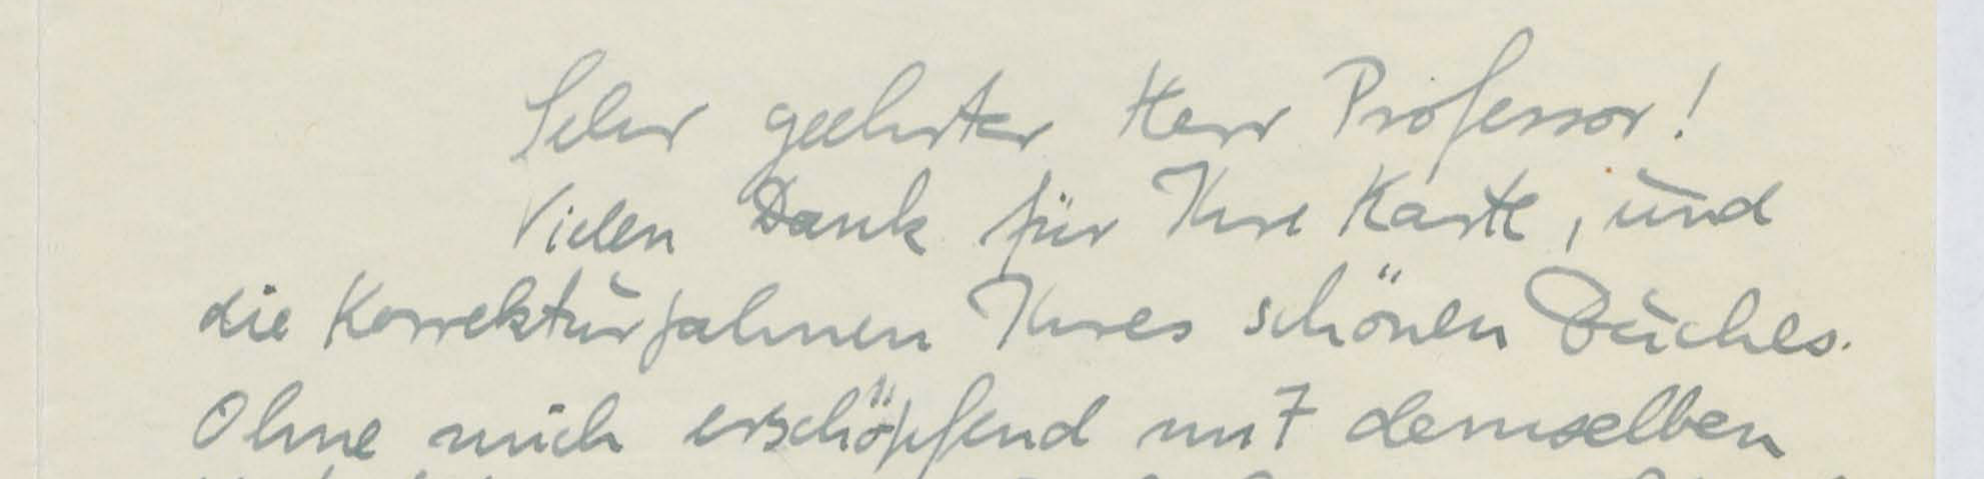 Sehr geehrter Herr Professor!
Vielen Dank für Ihre Karte, und
die Korrekturfahnen Ihres schönen Buches.
Ohne mich erschöpfend mit demselben